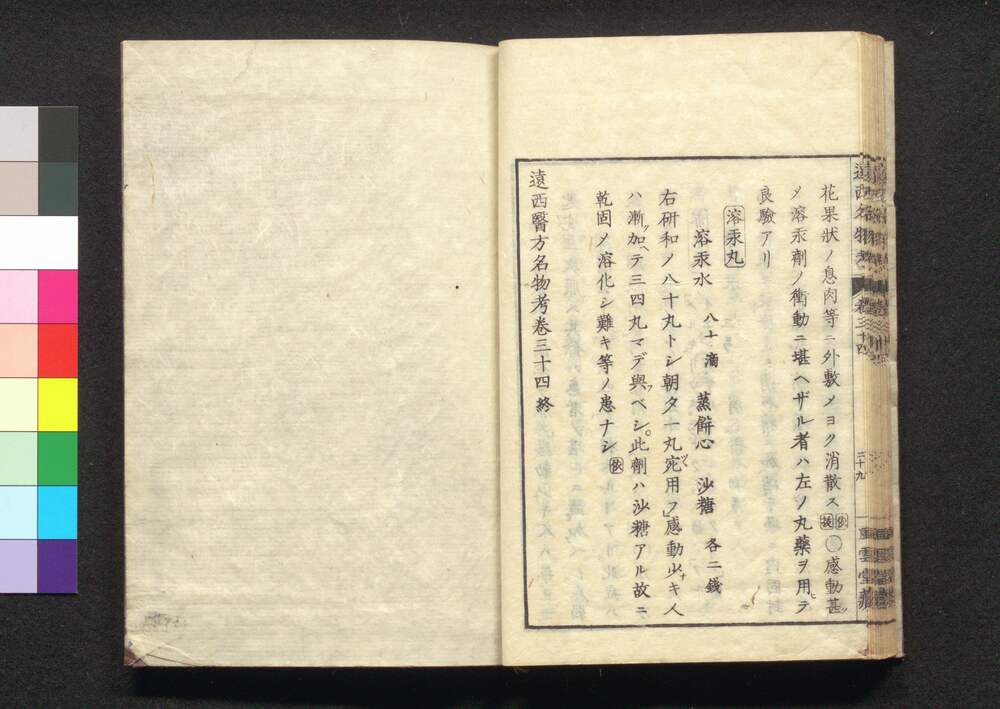 花果狀ノ息肉等ニ外敷〆ヨク消散ス㊡扶〇感動甚ツ
〆溶汞劑ノ衝動ニ堪ヘザル者ハ左ノ丸藥ヲ用ヒテ
良驗アリ
溶汞丸
溶汞水 八十滴 蒸餅心 沙糖 各二錢
右研和〆八十丸トシ朝夕一丸ヅツ用フ感動少ナキ人
ハ漸ツ加ヘテ三四丸マデ與フベシ。此劑ハ沙糖アル故ニ
乾固〆溶化シ難キ等ノ患ナシ
遠西醫方名物考卷三十四終
遠西名物考 卷三十四
三十九
堂藏